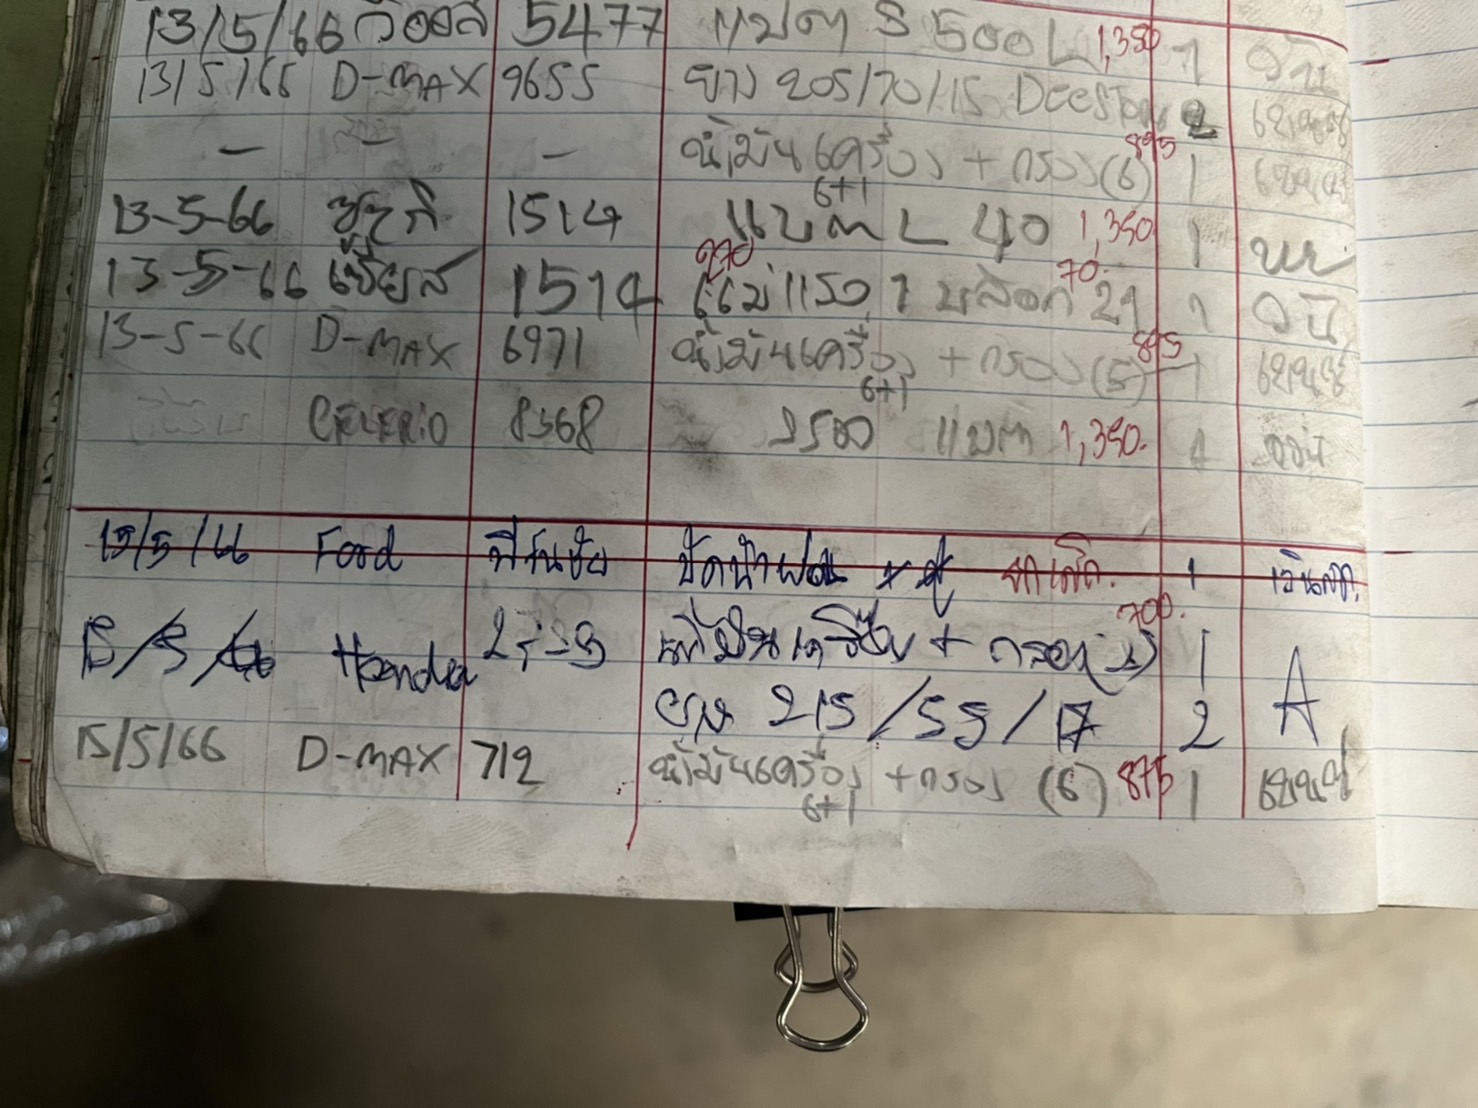 13/5/66 วีออส 5477 แบต S 500 L 1,350 1
13/5/66 D-MAX 9655 ยาง 205/70/15 Deestone 2
— — — น้ำมันเครื่อง + กรอง (6) 895 1
6+1
13-5-66 ซูซูกิ 1514 แบต L 40 1,350 1
270 70.
13-5-66 1514 แม่แรง 1 บล็อก 21 1
13-5-66 D-MAX 6971 น้ำมันเครื่อง + กรอง (5) 895 1
6+1
CELERIO 8368 แบต 1,350. 1
15/5/66 Ford ปัดน้ำฝน ยกเลิก. 1
700.
15/5/66 Honda น้ำมันเครื่อง + กรอง 1
ยาง 215/55/17 2 A
15/5/66 D-MAX 712 น้ำมันเครื่อง + กรอง (6) 875 1
6+1